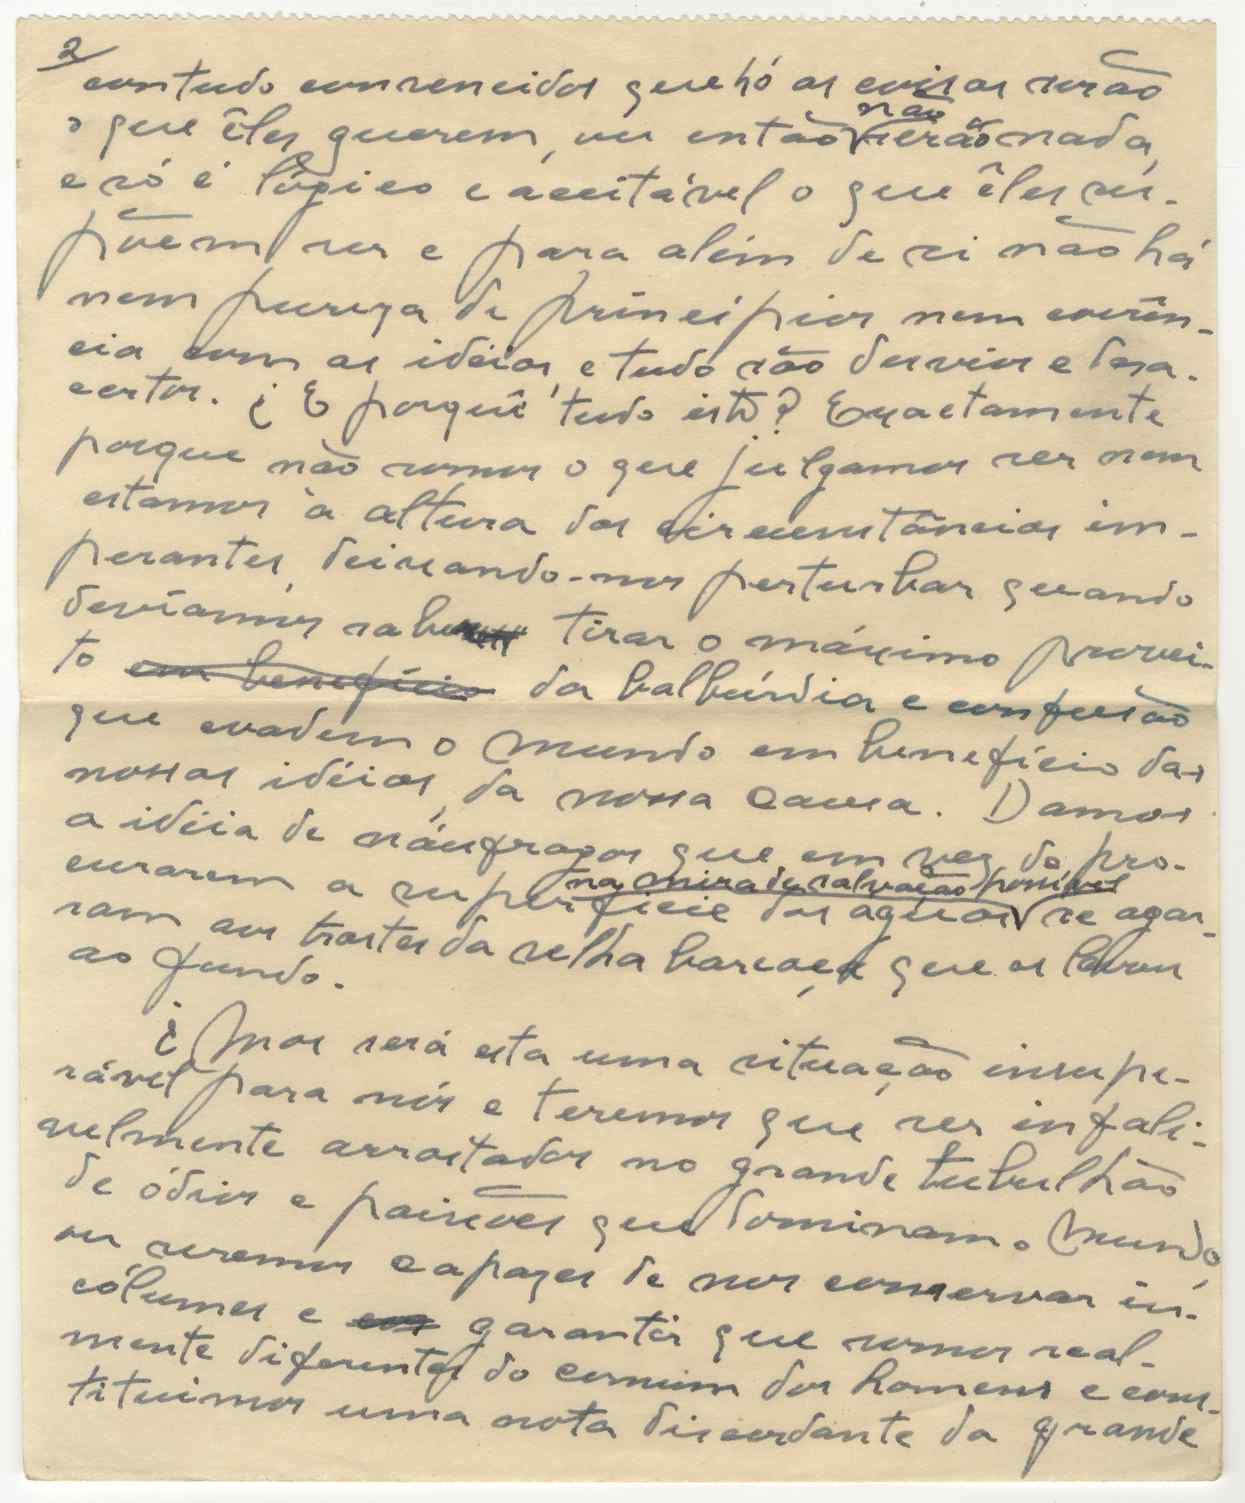 2
contudo convencidos que só as coisas serão
o que êles querem, ou então não serão nada,
e só é lógico e aceitável o que êles su-
põem ser e para além de si não há
nem pureza de princípios nem coerên-
cia com as idéias, e tudo são desvios e desa-
certos. ¿E porquê tudo isto? Exactamente
porque não somos o que julgamos ser nem
estamos à altura das circunstâncias im-
perantes, deixando-nos perturbar quando
devíamos saber tirar o máximo provei-
to em benefício da balbúrdia e confusão
que evadem o mundo em benefício das
nossas idéias, da nossa causa. Damos
a idéia de náufragos que em vez de pro-
curarem a superfície das águas na mira de salvação possível se agar-
ram aos trastes da velha barcaça que os levou
ao fundo.
¿Mas será esta uma situação insupe-
rável para nós e teremos que ser infali-
velmente arrastados no grande tubulhão
de ódios e paixões que dominam o mundo,
ou seremos capazes de nos conservar in-
cólumes e garantir que somos real-
mente diferentes do comum dos homens e cons-
tituimos uma nota discordante da grande